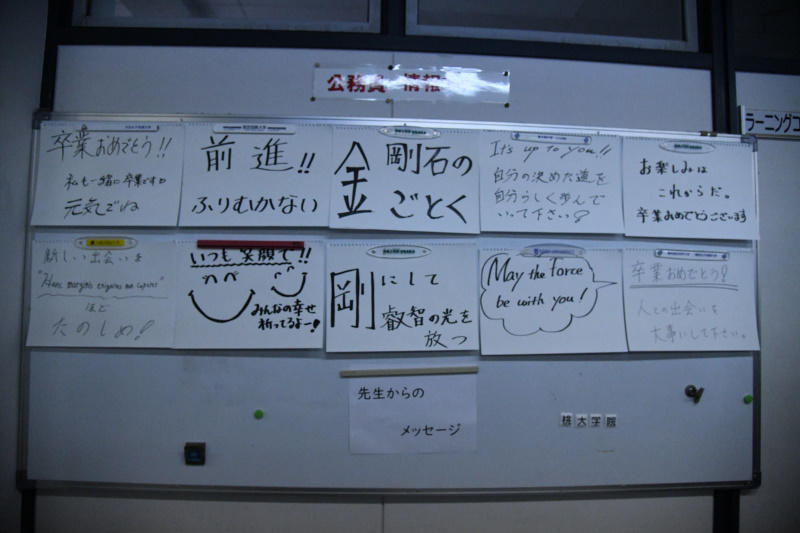 公務員 情報
ラーニングコ
卒業おめでとう!!
私も一緒に卒業です
元気でね
前進!!
ふりむかない
金剛石の
ごとく
It's up to you!!
自分の決めた道を
自分らしく歩んで
いって下さい
お楽しみは
これからだ。
卒業おめでとうございます
新しい出会いを
ほど
たのしめ!
いつも笑顔で!!
みんなの幸せ
祈ってるよー!
剛にして
叡智の光を
放つ
May the force
be with you!
卒業おめでとう!
人との出会いを
大事にして下さい。
先生からの
メッセージ
大学院